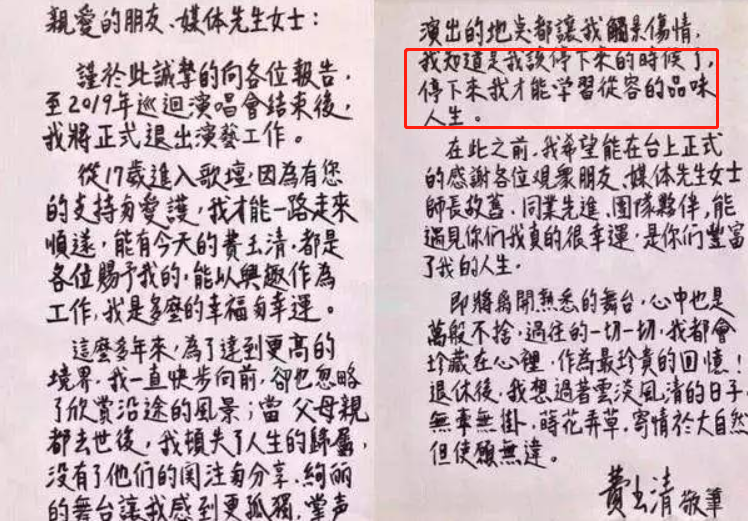 親愛的朋友、媒体先生女士：
謹於此誠摯的向各位報告，
至2019年巡迴演唱會結束後，
我將正式退出演藝工作。
從17歲進入歌壇，因為有您
的支持與愛護，我才能一路走來
順遂，能有今天的費玉清，都是
各位賜予我的，能以興趣作為
工作，我是多麼的幸福與幸運。
這麼多年來，為了達到更高的
境界，我一直快步向前，卻也忽略
了欣賞沿途的風景；當父母親
都去世後，我頓失了人生的歸屬，
沒有了他們的関注與分享，絢麗
的舞台讓我感到更孤獨，掌声
演出的地点都讓我觸景傷情，
我知道是我該停下來的時候了，
停下來我才能学習從容的品味
人生。
在此之前，我希望能在台上正式
的感謝各位観衆朋友、媒体先生女士
師長故舊、同業先進、團隊夥伴，能
遇見你們我真的很幸運，是你們豐富
了我的人生。
即將離開熟悉的舞台，心中也是
萬般不捨，過往的一切一切，我都會
珍藏在心裡，作為最珍貴的回憶！
退休後，我想過著雲淡風清的日子，
無事無掛，蒔花弄草，寄情於大自然
但使願無違。
費玉清 敬筆